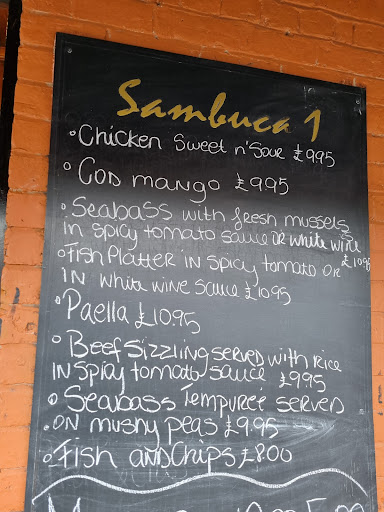 Sambuca 1
• Chicken Sweet n' Sour £9.95
• Cod mango £9.95
• Seabass with fresh mussels
in spicy tomato sauce OR white wine
£10.95
• Fish Platter in spicy tomato OR
IN white wine sauce £10.95
• Paella £10.95
• Beef Sizzling served with rice
IN Spicy tomato sauce £9.95
• Seabass Tempuree served
• ON mushy peas £9.95
• Fish and Chips £8.00